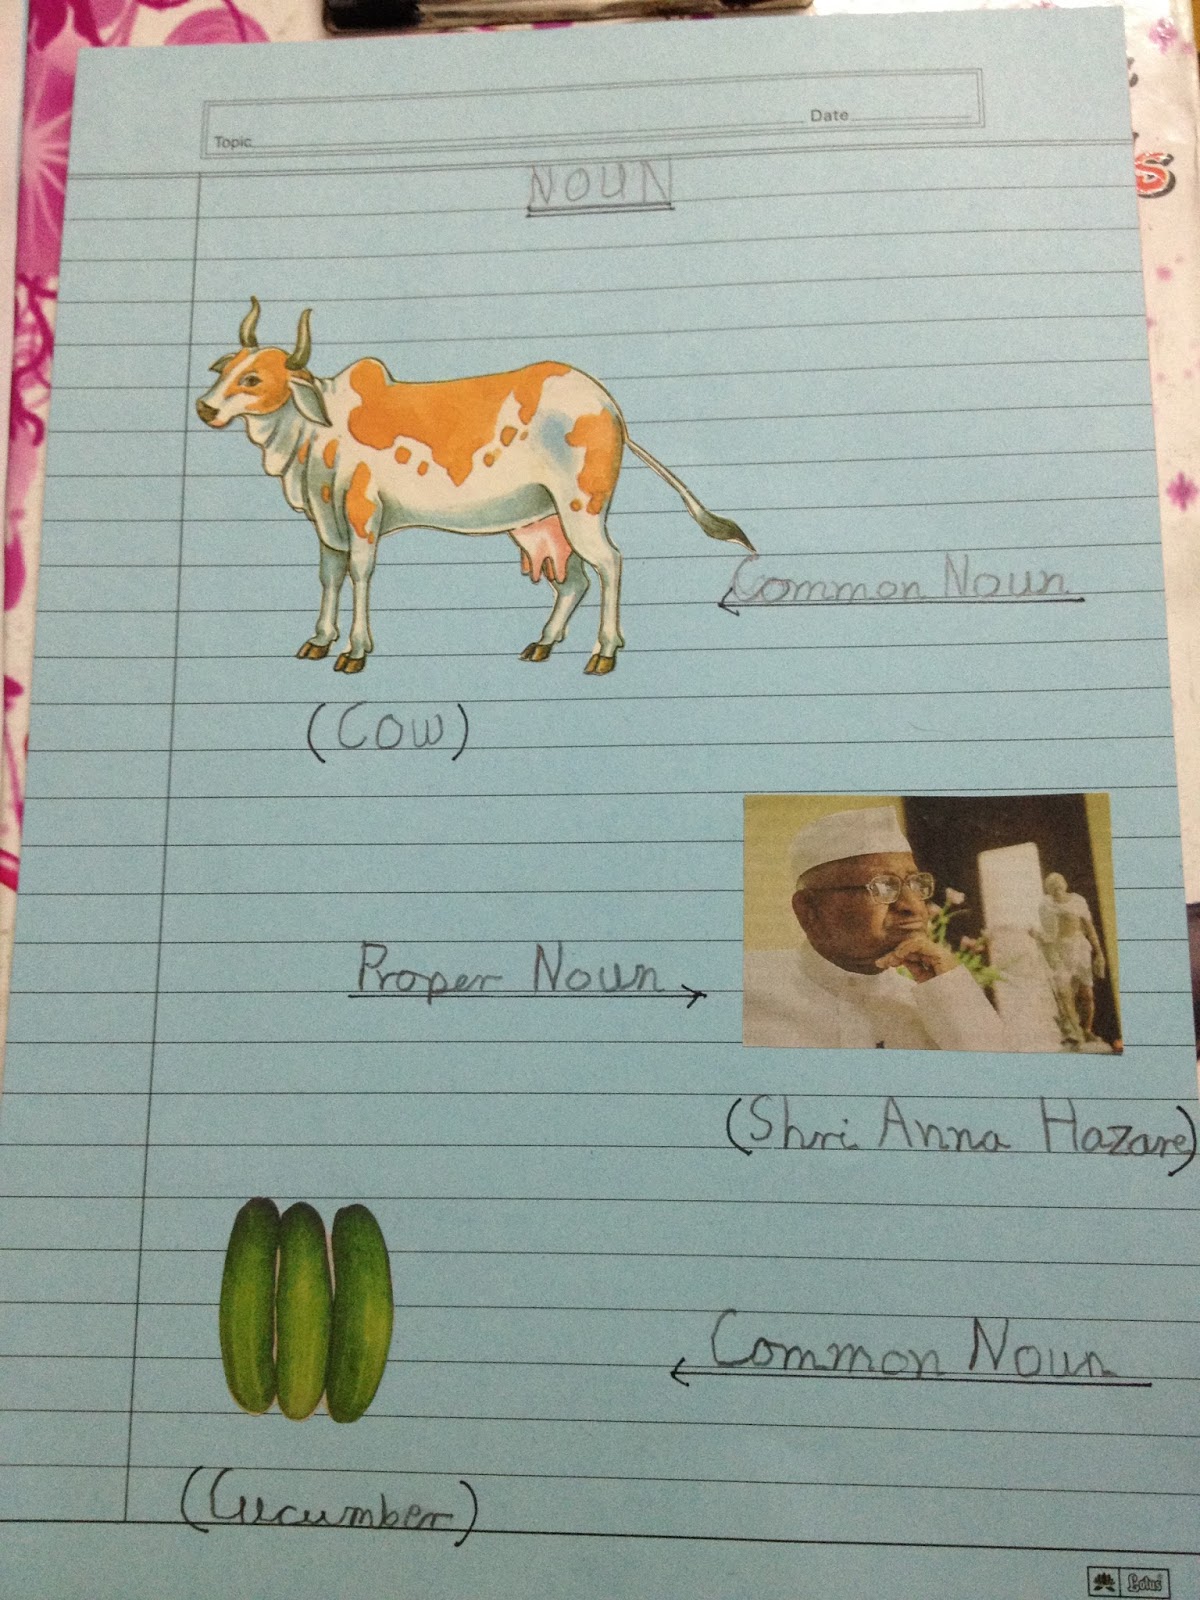 Topic
Date
NOUN
Common Noun
(Cow)
Proper Noun
(Shri Anna Hazare)
Common Noun
(Cucumber)
Lotus